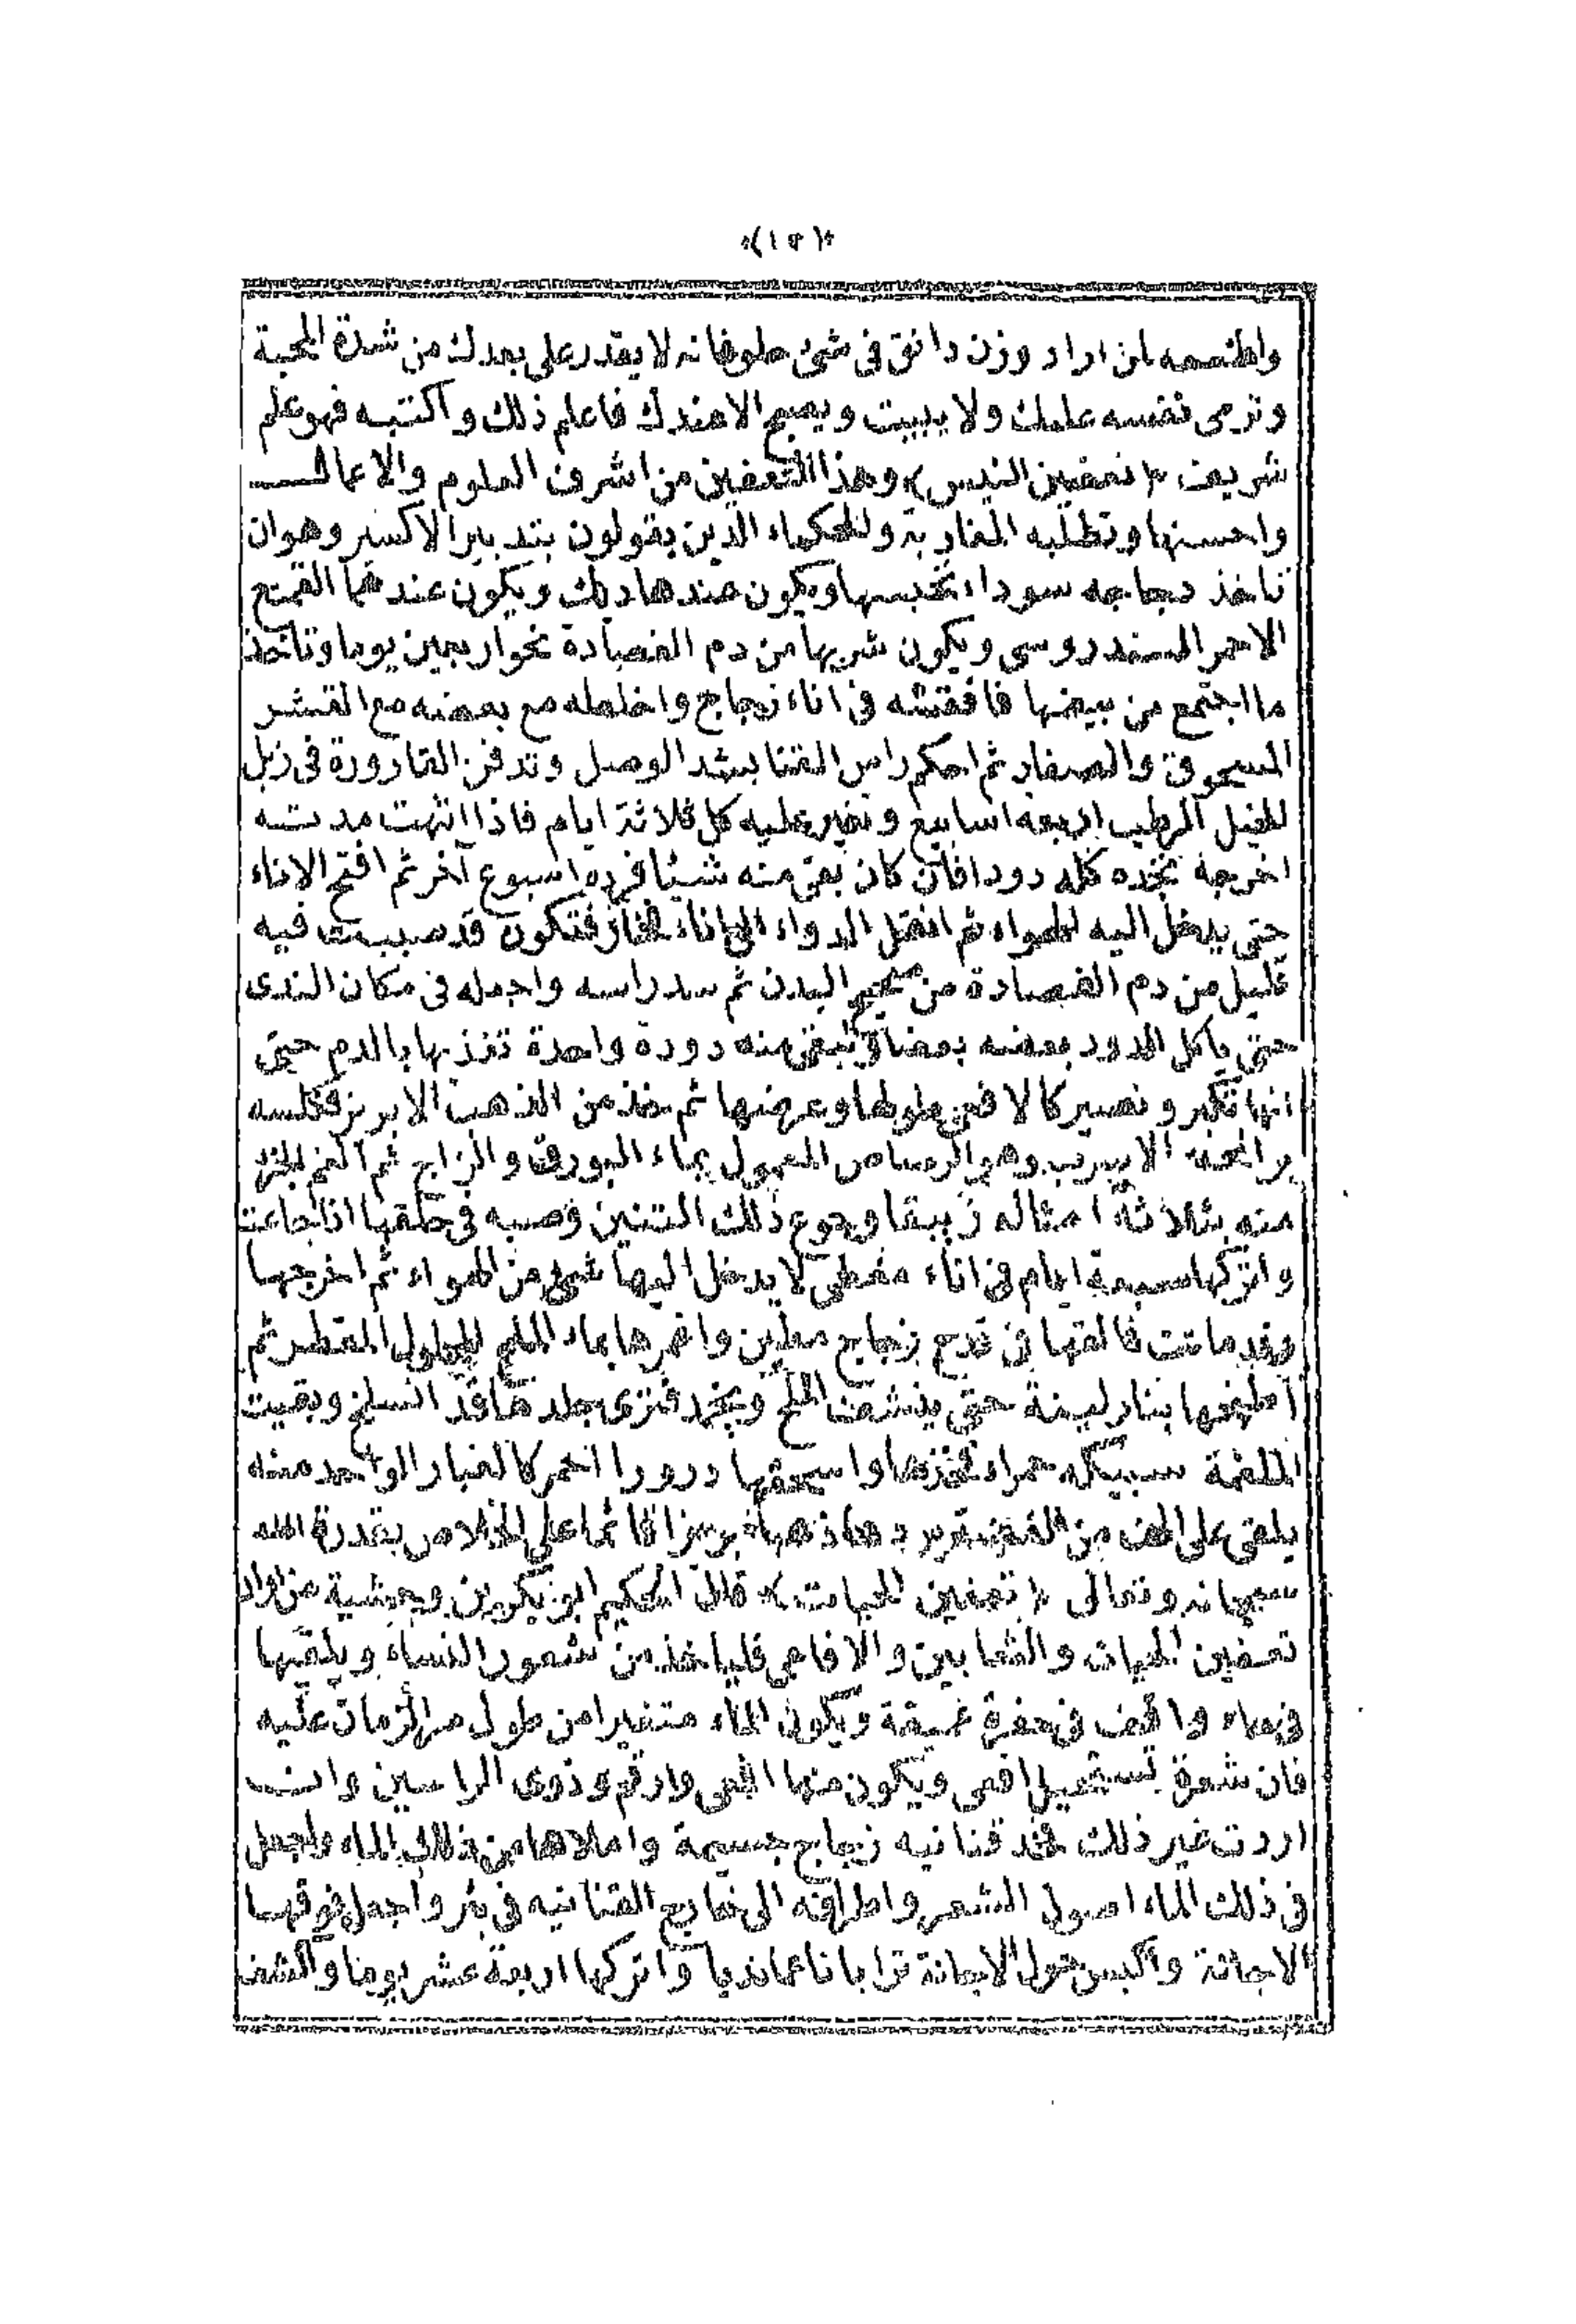 ﴿١٥﴾
واطعمه لمن اراد وزن دانق فى شئ حلو فانه لا يقدر على بعدك من شدة المحبة
وترمى نفسه عليك ولا يبيت ويصبح الا عندك فاعلم ذلك واكتبه فهو علم
شريف ﴿تعفين التنيس﴾ وهذا التعفين من اشرف العلوم والاعمال
واحسنها وتطلبه المغاربة والحكماء الذين يقولون بتدبير الاكسير وهو ان
تاخذ دجاجه سوداء تحبسها ويكون عندها ديك ويكون عندهما القمح
الاحمر السندروسى ويكون شربها من دم الفصادة نحو اربعين يوما وتاخذ
ما اجتمع من بيضها فافقشه فى اناء زجاج واخلطه مع بعضه مع القشر
المسحوق والصفار ثم احكم راس القنا بشد الوصل وتدفن القارورة فى زبل
الخيل الرطب اربعه اسابيع وتغير عليه كل ثلاثة ايام فاذا انتهت مدته
اخرجه تجده كله دودا فان كان بقى منه شيئا فزده اسبوع آخر ثم افتح الاناء
حتى يدخل اليه الهواء ثم انقل الدواء الى اناء فخار فتكون قد صببت فيه
قليل من دم الفصادة من صحيح البدن ثم سد راسه واجعله فى مكان الندى
حتى ياكل الدود بعضه بعضا وتبقى منه دودة واحدة تغذيها بالدم حتى
انها تكبر وتصير كالافعى طولها وعرضها ثم خذ من الذهب الابريز فكلسه
برائحة الاسرب وهو الرصاص المعمول بماء البورق والزاج ثم الغم الجزء
منه بثلاثة امثاله زيبقا وجوع ذلك التنين وصبه فى حلقها اذا جاعت
واتركها سبعة ايام فى اناء مغطى لا يدخل اليها شئ من الهواء ثم اخرجها
وقد ماتت فالقها فى قدح زجاج مطين واغمرها بماء الملح المحلول المقطر ثم
اطبخها بنار لينة حتى ينشف الملح ويجمد فترى جلدها قد انسلخ وبقيت
الملغمة سبيكه حمراء فخذها واسحقها ذرورا احمر كالغبار الواحد منه
يلقى على الف من القمر يردها ذهبا ابريزا قائما على الخلاص بقدرة الله
سبحانه وتعالى ﴿تعفين الحيات﴾ قال الحكيم ابو بكر بن وحشية من اراد
تعفين الحيات والثعابين والافاعى فلياخذ من شعور النساء ويلقيها
فى ماء واقف فى حفرة عميقة ويكون الماء متغيرا من طول مر الزمان عليه
فان شعرة تستحيل افعى ويكون منها افعى وارقم وذوى الراسين وان
اردت غير ذلك فخذ قنانيه زجاج جسيمة واملاها من ذلك الماء واجعل
فى ذلك الماء اصول الشعر واطرافه الى خارج القنانيه فى بئر واجعل فوقها
الاجانة واكبس حول الاجانة ترابا ناعما نديا واتركها اربعة عشر يوما واكشف